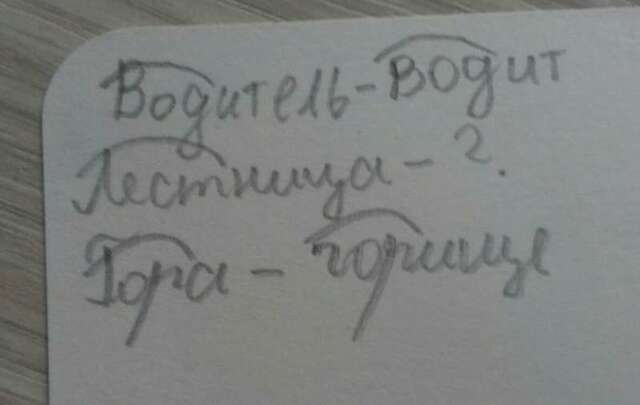 Водитель - водит
Лестница - ?.
Гора - горище